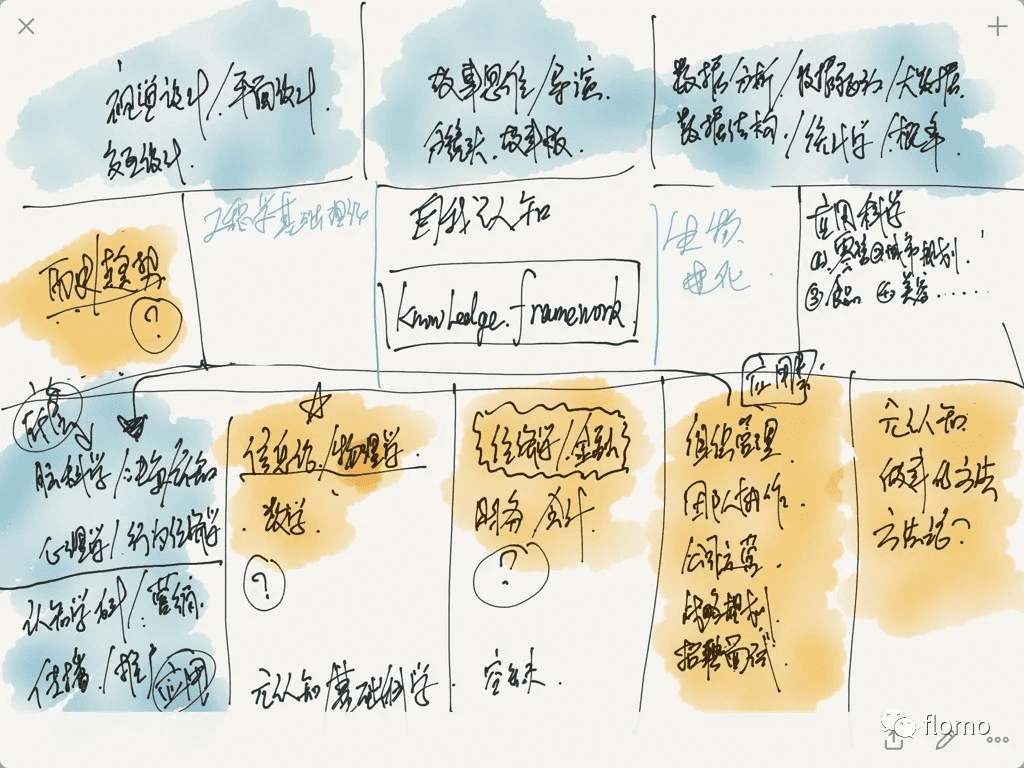 视觉设计/平面设计.
交互设计.
故事思维/导演.
分镜头.故事板.
数据分析/数据驱动/大数据.
数据结构./统计学/.概率.
历史/趋势
?
工程学基础理论
自我认知
Knowledge.framework.
生物.
进化
应用科学
①.②城市规划.
③食品 ④美容......
应用层.
底层
脑科学/决策/元认知
心理学/行为经济学
认知学科/营销.
传播./推广
应用
信息论./物理学.
.数学.
?
元认知基础科学
经济学/金融
财务 会计.
?
空缺.
组织管理.
团队协作.
公司运营.
战略规划.
招聘面试.
元认知.
做事的方法
方法论?
flomo